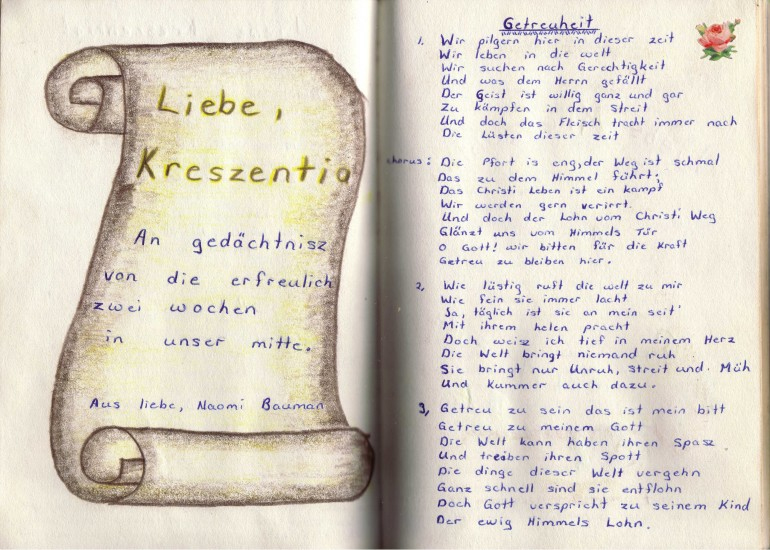 Liebe,
Kreszentia
An gedächtnisz
von die erfreulich
zwei wochen
in unser mitte.
Aus liebe, Naomi Bauman
Getreuheit
1. Wir pilgern hier in dieser zeit
Wir leben in die welt
Wir suchen nach Gerechtigkeit
Und was dem Herrn gefällt
Der Geist ist willig ganz und gar
Zu kämpfen in dem Streit
Und doch das Fleisch tracht immer nach
Die Lüsten dieser zeit
chorus: Die Pfort is eng, der Weg ist schmal
Das zu dem Himmel führt;
Das Christi Leben ist ein kampf
Wir werden gern verirrt.
Und doch der Lohn vom Christi Weg
Glänzt uns vom Himmels Tür
O Gott! wir bitten für die Kraft
Getreu zu bleiben hier.
2, Wie lüstig ruft die welt zu mir
Wie fein sie immer lacht
Ja, täglich ist sie an mein seit'
Mit ihrem helen pracht
Doch weisz ich tief in meinem Herz
Die Welt bringt niemand ruh
Sie bringt nur Unruh, Streit und Müh
Und Kummer auch dazu.
3, Getreu zu sein das ist mein bitt
Getreu zu meinem Gott
Die Welt kann haben ihren Spasz
Und treiben ihren Spott
Die dinge dieser Welt vergehn
Ganz schnell sind sie entflohn
Doch Gott verspricht zu seinem Kind
Der ewig Himmels Lohn.